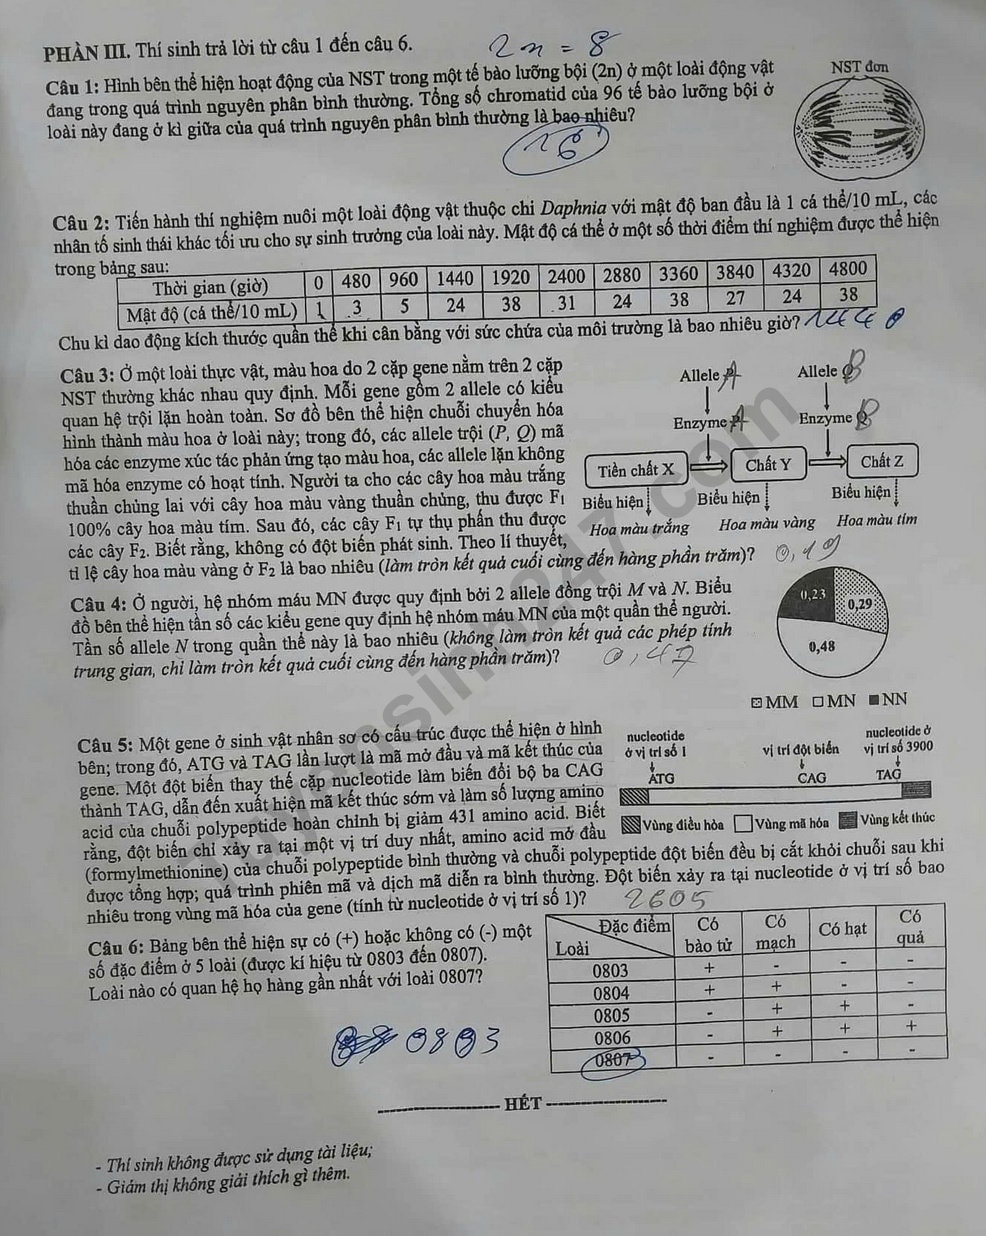 PHẦN III. Thí sinh trả lời từ câu 1 đến câu 6.
2n = 8
Câu 1: Hình bên thể hiện hoạt động của NST trong một tế bào lưỡng bội (2n) ở một loài động vật
đang trong quá trình nguyên phân bình thường. Tổng số chromatid của 96 tế bào lưỡng bội ở
loài này đang ở kì giữa của quá trình nguyên phân bình thường là bao nhiêu?
NST đơn
16
Câu 2: Tiến hành thí nghiệm nuôi một loài động vật thuộc chi Daphnia với mật độ ban đầu là 1 cá thể/10 mL, các
nhân tố sinh thái khác tối ưu cho sự sinh trưởng của loài này. Mật độ cá thể ở một số thời điểm thí nghiệm được thể hiện
trong bảng sau:
Thời gian (giờ) 0 480 960 1440 1920 2400 2880 3360 3840 4320 4800
Mật độ (cá thể/10 mL) 1 3 5 24 38 31 24 38 27 24 38
Chu kì dao động kích thước quần thể khi cân bằng với sức chứa của môi trường là bao nhiêu giờ? 1440
Câu 3: Ở một loài thực vật, màu hoa do 2 cặp gene nằm trên 2 cặp
NST thường khác nhau quy định. Mỗi gene gồm 2 allele có kiểu
quan hệ trội lặn hoàn toàn. Sơ đồ bên thể hiện chuỗi chuyển hóa
hình thành màu hoa ở loài này; trong đó, các allele trội (P, Q) mã
hóa các enzyme xúc tác phản ứng tạo màu hoa, các allele lặn không
mã hóa enzyme có hoạt tính. Người ta cho các cây hoa màu trắng
thuần chủng lai với cây hoa màu vàng thuần chủng, thu được F1
100% cây hoa màu tím. Sau đó, các cây F1 tự thụ phấn thu được
các cây F2. Biết rằng, không có đột biến phát sinh. Theo lí thuyết,
tỉ lệ cây hoa màu vàng ở F2 là bao nhiêu (làm tròn kết quả cuối cùng đến hàng phần trăm)? 0,19
Allele A Allele B
Enzyme A Enzyme B
Tiền chất X Chất Y Chất Z
Biểu hiện Biểu hiện Biểu hiện
Hoa màu trắng Hoa màu vàng Hoa màu tím
Câu 4: Ở người, hệ nhóm máu MN được quy định bởi 2 allele đồng trội M và N. Biểu
đồ bên thể hiện tần số các kiểu gene quy định hệ nhóm máu MN của một quần thể người.
Tần số allele N trong quần thể này là bao nhiêu (không làm tròn kết quả các phép tính
trung gian, chỉ làm tròn kết quả cuối cùng đến hàng phần trăm)? 0,47
0,23
0,29
0,48
MM MN NN
Câu 5: Một gene ở sinh vật nhân sơ có cấu trúc được thể hiện ở hình
bên; trong đó, ATG và TAG lần lượt là mã mở đầu và mã kết thúc của
gene. Một đột biến thay thế cặp nucleotide làm biến đổi bộ ba CAG
thành TAG, dẫn đến xuất hiện mã kết thúc sớm và làm số lượng amino
acid của chuỗi polypeptide hoàn chỉnh bị giảm 431 amino acid. Biết
rằng, đột biến chỉ xảy ra tại một vị trí duy nhất, amino acid mở đầu
(formylmethionine) của chuỗi polypeptide bình thường và chuỗi polypeptide đột biến đều bị cắt khỏi chuỗi sau khi
được tổng hợp; quá trình phiên mã và dịch mã diễn ra bình thường. Đột biến xảy ra tại nucleotide ở vị trí số bao
nhiêu trong vùng mã hóa của gene (tính từ nucleotide ở vị trí số 1)? 2605
nucleotide
ở vị trí số 1
vị trí đột biến
nucleotide ở
vị trí số 3900
ATG CAG TAG
Vùng điều hòa Vùng mã hóa Vùng kết thúc
Câu 6: Bảng bên thể hiện sự có (+) hoặc không có (-) một
số đặc điểm ở 5 loài (được kí hiệu từ 0803 đến 0807).
Loài nào có quan hệ họ hàng gần nhất với loài 0807?
0803
Đặc điểm
Loài
Có bào tử Có mạch Có hạt Có quả
0803 + - - -
0804 + + - -
0805 - + + -
0806 - + + +
0807 - - - -
HẾT
- Thí sinh không được sử dụng tài liệu;
- Giám thị không giải thích gì thêm.
Tuyensinh247.com